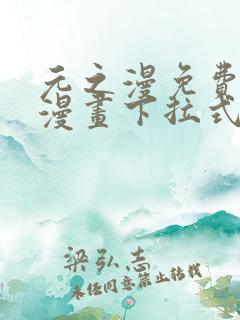 元之漫免費
漫畫下拉式
梁弘志
未任同意禁止转载